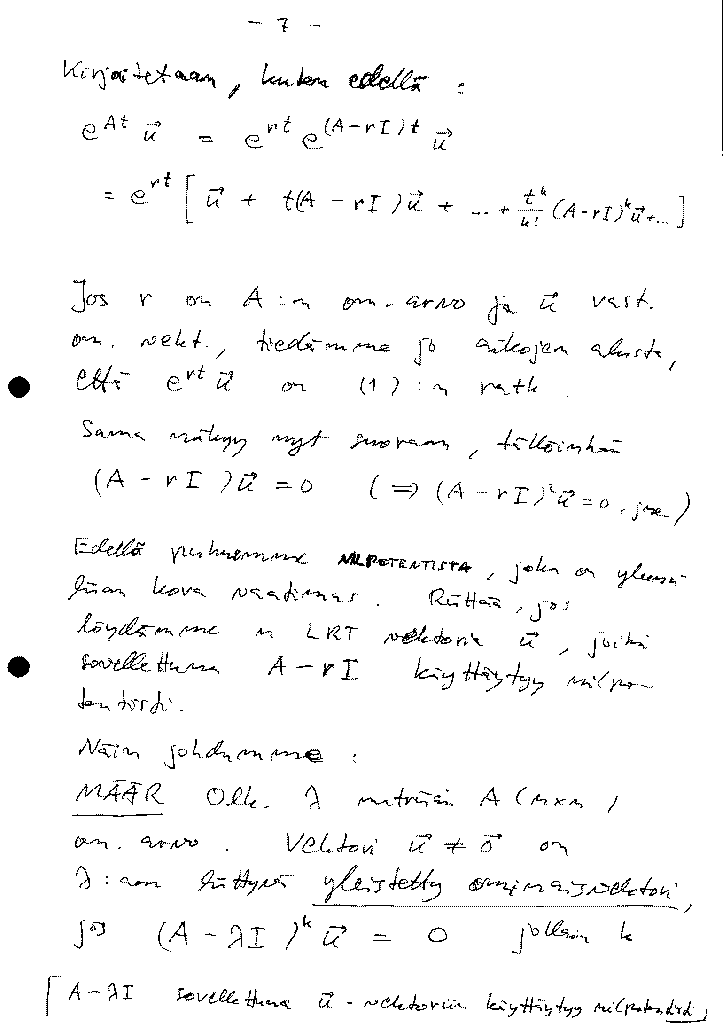 - 7 -
Kirjoitetaan, kuten edellä :
e^{At} \vec{u} = e^{rt} e^{(A-rI)t} \vec{u}
= e^{rt} [ \vec{u} + t(A - rI)\vec{u} + ... + \frac{t^k}{k!} (A-rI)^k \vec{u} + ... ]
Jos r on A:n om.arvo ja \vec{u} vast.
om. vekt., tiedämme jo aikojen alusta,
että e^{rt} \vec{u} on (1):n ratk.
Sama näkyy nyt suoraan, tällöinhän
(A - rI)\vec{u} = 0 (⇒ (A - rI)^k \vec{u} = 0,
Edellä puhuimme NILPOTENTISTA, joka on yleensä
liian kova vaatimus. Riittää, jos
löydämme n LRT vektoria \vec{u}, joihin
sovellettuna A - rI käyttäytyy nilpo-
tentisti.
Näin johdumme :
MÄÄR Olk. λ matriisin A (n×n)
om. arvo. Vektori \vec{u} ≠ \vec{0} on
λ:aan liittyvä yleistetty ominaisvektori,
jos (A - λI)^k \vec{u} = 0 jollain k
[ A-λI sovellettuna \vec{u} - vektoriin käyttäytyy nilpotentisti